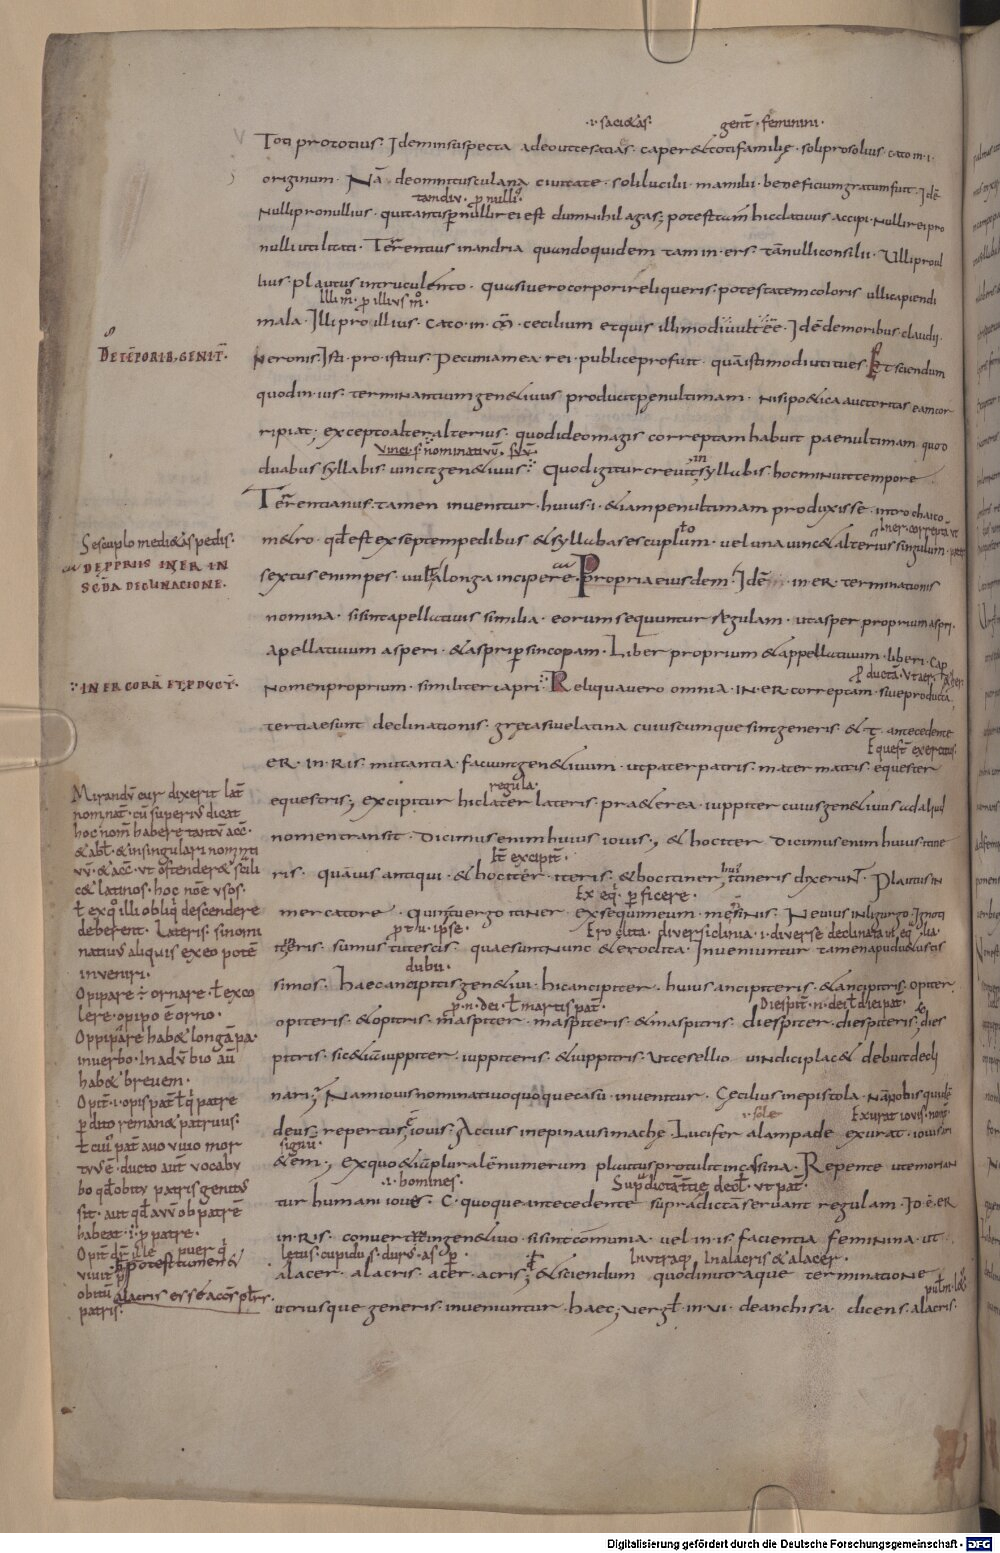 ·i· sacietas· gent̄· feminini·
Toti pro totius· Idem in suspecta adeout te satias· caper & toti familię· soli pro solius· cato in ·i·
originum· Nā de omni tusculana ciuitate· soli lucilii mamilii beneficium gratum fuit· Idē
tamdiu· ꝑ nulliꝰ
Nulli pro nullius· qui tantisꝑ nulli rei est dum nihil agas; potest tam̄ hic datiuus accipi· nulli rei pro
nulli utilitati· Terentius in andria quandoquidem tam iners· tā nulli consilii· Ulli pro ul
lius· plautus in truculento· quasi uero corpori reliqueris· potestatem coloris ulli capiendi
Illi m̊· ꝓ illius m̊·
mala· Illi pro illius· Cato in· m̄· cecilium et quis illimodi uult eē· Idē de moribus claudii
Neronis· Isti· pro· istius· Pecunia mea rei· publice profuit· quā istimodi uti tues· Et sciendum
DE TĒPORIB· GENIT̄·
quod in ·ius· terminantium gen&iuus producit penultimam· nisi po&ica auctoritas eam cor
ripiat; excepto alter alterius· quod ideo magis correptam habuit paenultimam quod
uincit nominatiuū· suū
duabus syllabis uincit gen&iuus· Quod igitur creuit in syllabis· hoc minuit tempore
Terentianus· tamen inuenitur· huius ·i· &iam penultimam produxisse· in trochaico
m&ro· qđ est ex septem pedibus & syllaba sescuplum· uel una uinc& alterius singulum·
Sescuplo medi&as pedis·
DE PPRIIS IN ER IN
SCĐA DECLINACIONE·
sextus enim pes uult a longa incipere· Propria eiusdem· Idē in er terminationis
nomina· si sint apellatiuis similia· eorum sequuntur regulam· ut asper proprium aspri·
apellatiuum asperi· & aspri ꝑ sincopam· Liber proprium & appellatiuum· liberi· Cap
IN ER CORR̄ ET PDUCT̄·
ꝓductā· ut aer·
Nomen proprium· similiter capri· Reliqua uero omnia· IN· ER correptam· siue productā·
tertiae sunt declinationis· gręca siue latina cuiuscumque sint generis· & t· antecedente
Equest̄ exercitus·
ER· IN· RIS· mittantia· faciunt gen&iuum· ut pater patris· mater matris· equester
regula·
equestris; excipitur hic later lateris· pra&erea· iuppiter cuius gen&iuus ad aliud
nomen transit· Dicimus enim huius iouis; & hoc iter Dicimus enim huius itine
t̄ excipit̄·
ris· quāuis antiqui· & hoc iter· iteris· & hoc itiner, itineris dixerunt· Plautus in
Ex eq̄· ꝑficere·
mercatore· quin tu ergo itiner exsequi meum· me sinis· Neuius in ligurgo· Ignoti
ꝑ tu· ipse·
iteris· sumus tute scis· quae sunt nunc & eroclita· Inueniuntur tamen apud u&ustis
dubii·
simos· Haec ancipitis gen&iui· hic ancipiter· huius ancipiteris· & ancipitris· opiter
ꝓ· n· dei· t̄ martis pat̄· Diespit̄· n·
opiteris· & opitris· maspiter· maspiteris· & maspitris· diespiter· diespiteris· & dies
pitris· sic & iuppiter· iuppiteris· & iuppitris· Ut cesellio uindici plac& debuit decli
nari; Nam iouis nominatiuo quoque casu inuenitur· Cęcilius in epistola· Nā nobis quidē
·i· sole Exurat iouis· nomīn
deus; repertus· ē iouis; Accius in epinausimache· Lucifer a lampade exurat· iouis ari
signū·
&em·; ex quo & iā pluralē numerum plautus protulit in casina· Repente ut emorian
·i· homines· Supdictā
tur humani ioues· C· quoque antecedente supradictam seruant regulam· Id· ē· ER
in· RIS· conuertit in gen&iuo· si sint cōmunia uel in· is· facientia feminina· ut
letus· cupidus· durus· asꝑ· In utraq; In alacris & alacer·
alacer· alacris· acer· acris; & sciendum quod in utraque terminatione
utriusque generis inueniuntur· haec; uergł· in· VI· de anchisa dicens· alacris·
Mirandū cur dixerit lat̄
nomīnat̄· cū superiꝰ dicat
hoc nom̄ habere tantū acc̄·
& abt̄· & in singulari nomīnti
uū· & acc̄· ut ostender& scili
c& latinos· hoc nōe usos·
t̄ ex quo illi obliq̄ descendere
deberent· Lateris· si nomi
natiuus aliquis ex eo potē
inueniri·
Opipare ē ornare· t̄ exco
lere· opipo· ē orno·
Oppipare hab& longā pa·
in uerbo· In aduerbio aū
hab& breuem·
Opit̄· ·i· opis pat̄ t̄ q̄ patre
ꝑdito remans patruus·
t̄ cuiꝰ pat̄ auo uiuo mor
tuus ē· ducto aut̄ uocabu
lo qđ obitu patris genitus
sit· aut qđ auū ob patre
habeat ·i· ꝓ patre·
Opit̄ dr̄ ille puer q̄
uiuit post
obitū alacris esse acer pler·
patris·